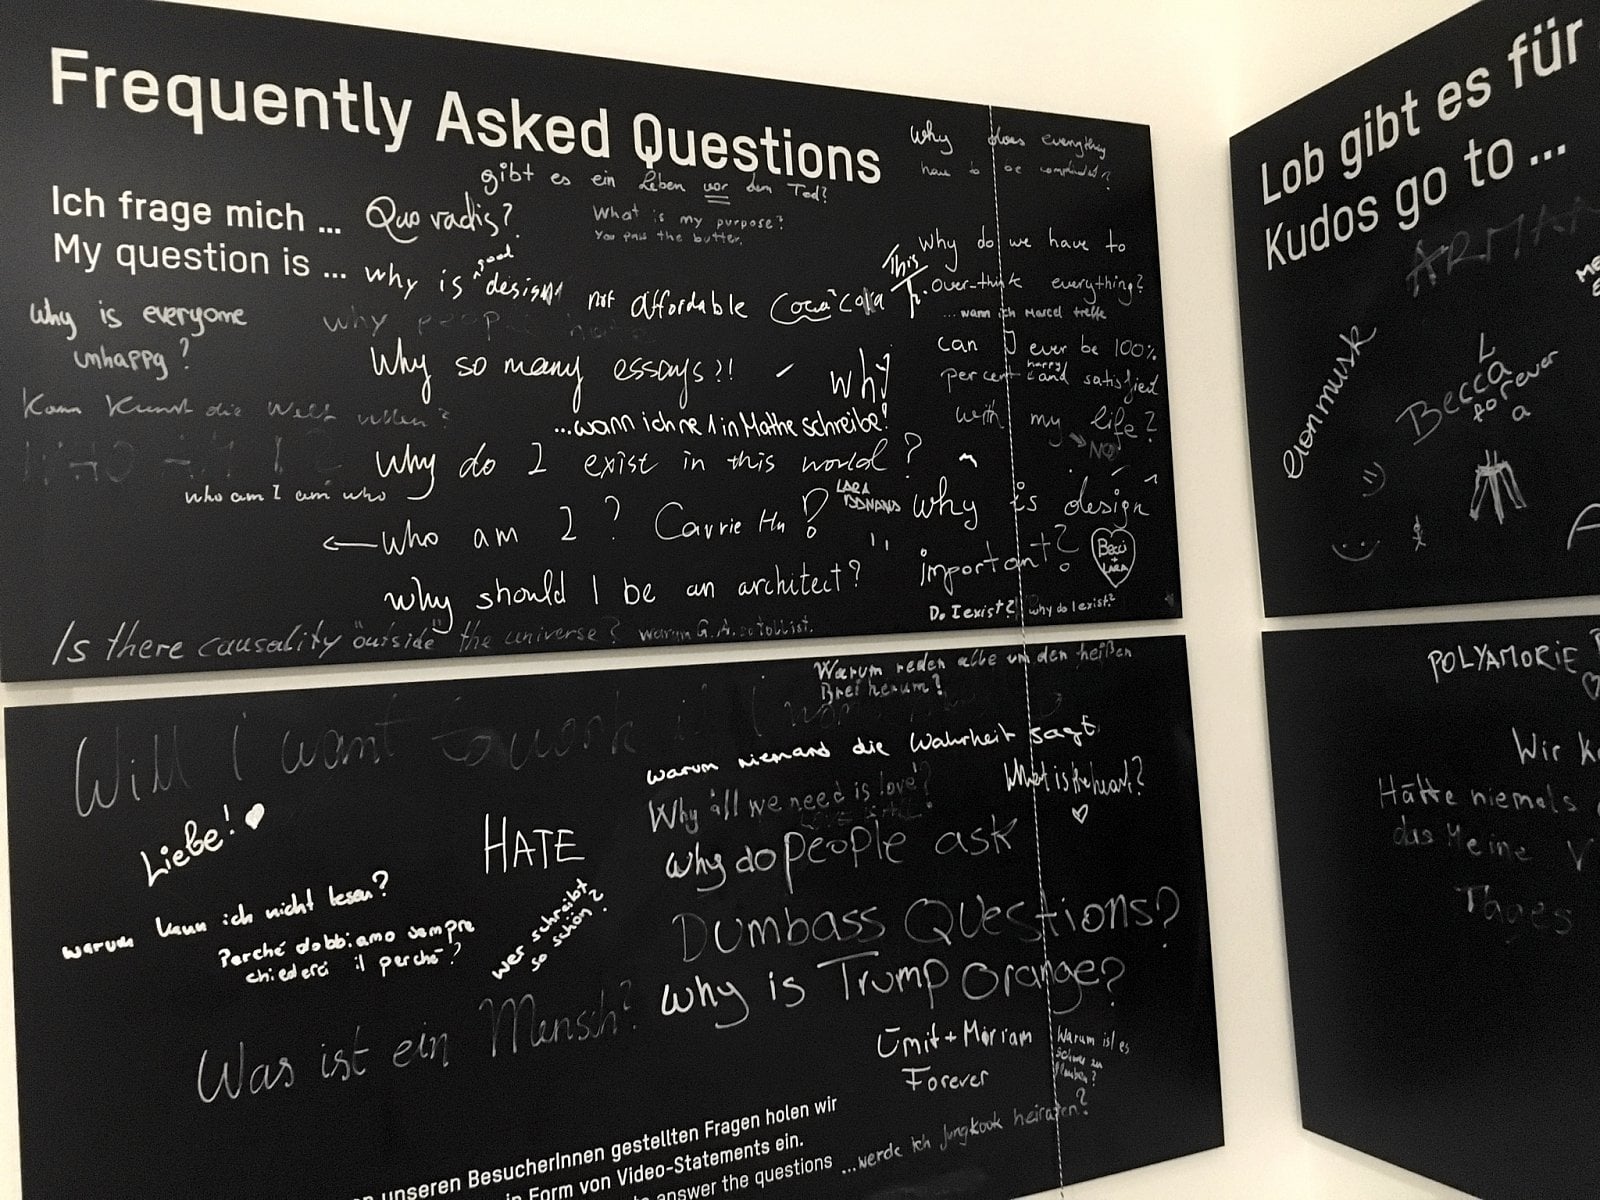 Frequently Asked Questions
Ich frage mich ...
My question is ...
gibt es ein Leben vor dem Tod?
Quo vadis?
What is my purpose?
You pass the butter.
why is good design not affordable
Coca Cola
This
why does everything
have to be complicated?
Why do we have to
over-think everything?
... wann ich Marcel treffe
why is everyone
unhappy?
why people
Why so many essays?! - why
can I ever be 100%
percent happy and satisfied
with my life?
NO
Kann Kunst die Welt
...wann ich ne 1 in Mathe schreibe!
Why do I exist in this world?
who am I am who
who am I?
LARA
why is design
important?
Becci
+
LARA
why should I be an architect?
Do I exist?
why do I exist?
Is there causality "outside" the universe?
warum G. A. so toll ist.
Warum reden alle um den heißen
Brei herum?
Will I want to work
warum niemand die Wahrheit sagt
What is the heart?
Why "all we need is love"?
Liebe!
HATE
why do people ask
Dumbass Questions?
warum kann ich nicht lesen?
Perché dobbiamo sempre
chiederci il perché?
wer schreibt
so schön?
why is Trump orange?
Was ist ein Mensch?
Ümit + Miriam
Forever
Warum ist es
...werde ich Jungkook heiraten?
unseren BesucherInnen gestellten Fragen holen wir
in Form von Video-Statements ein.
answer the questions
Lob gibt es für
Kudos go to ...
elon musk
Becca
forever
a
POLYAMORIE
Wir
Hätte niemals
das Meine
Tages